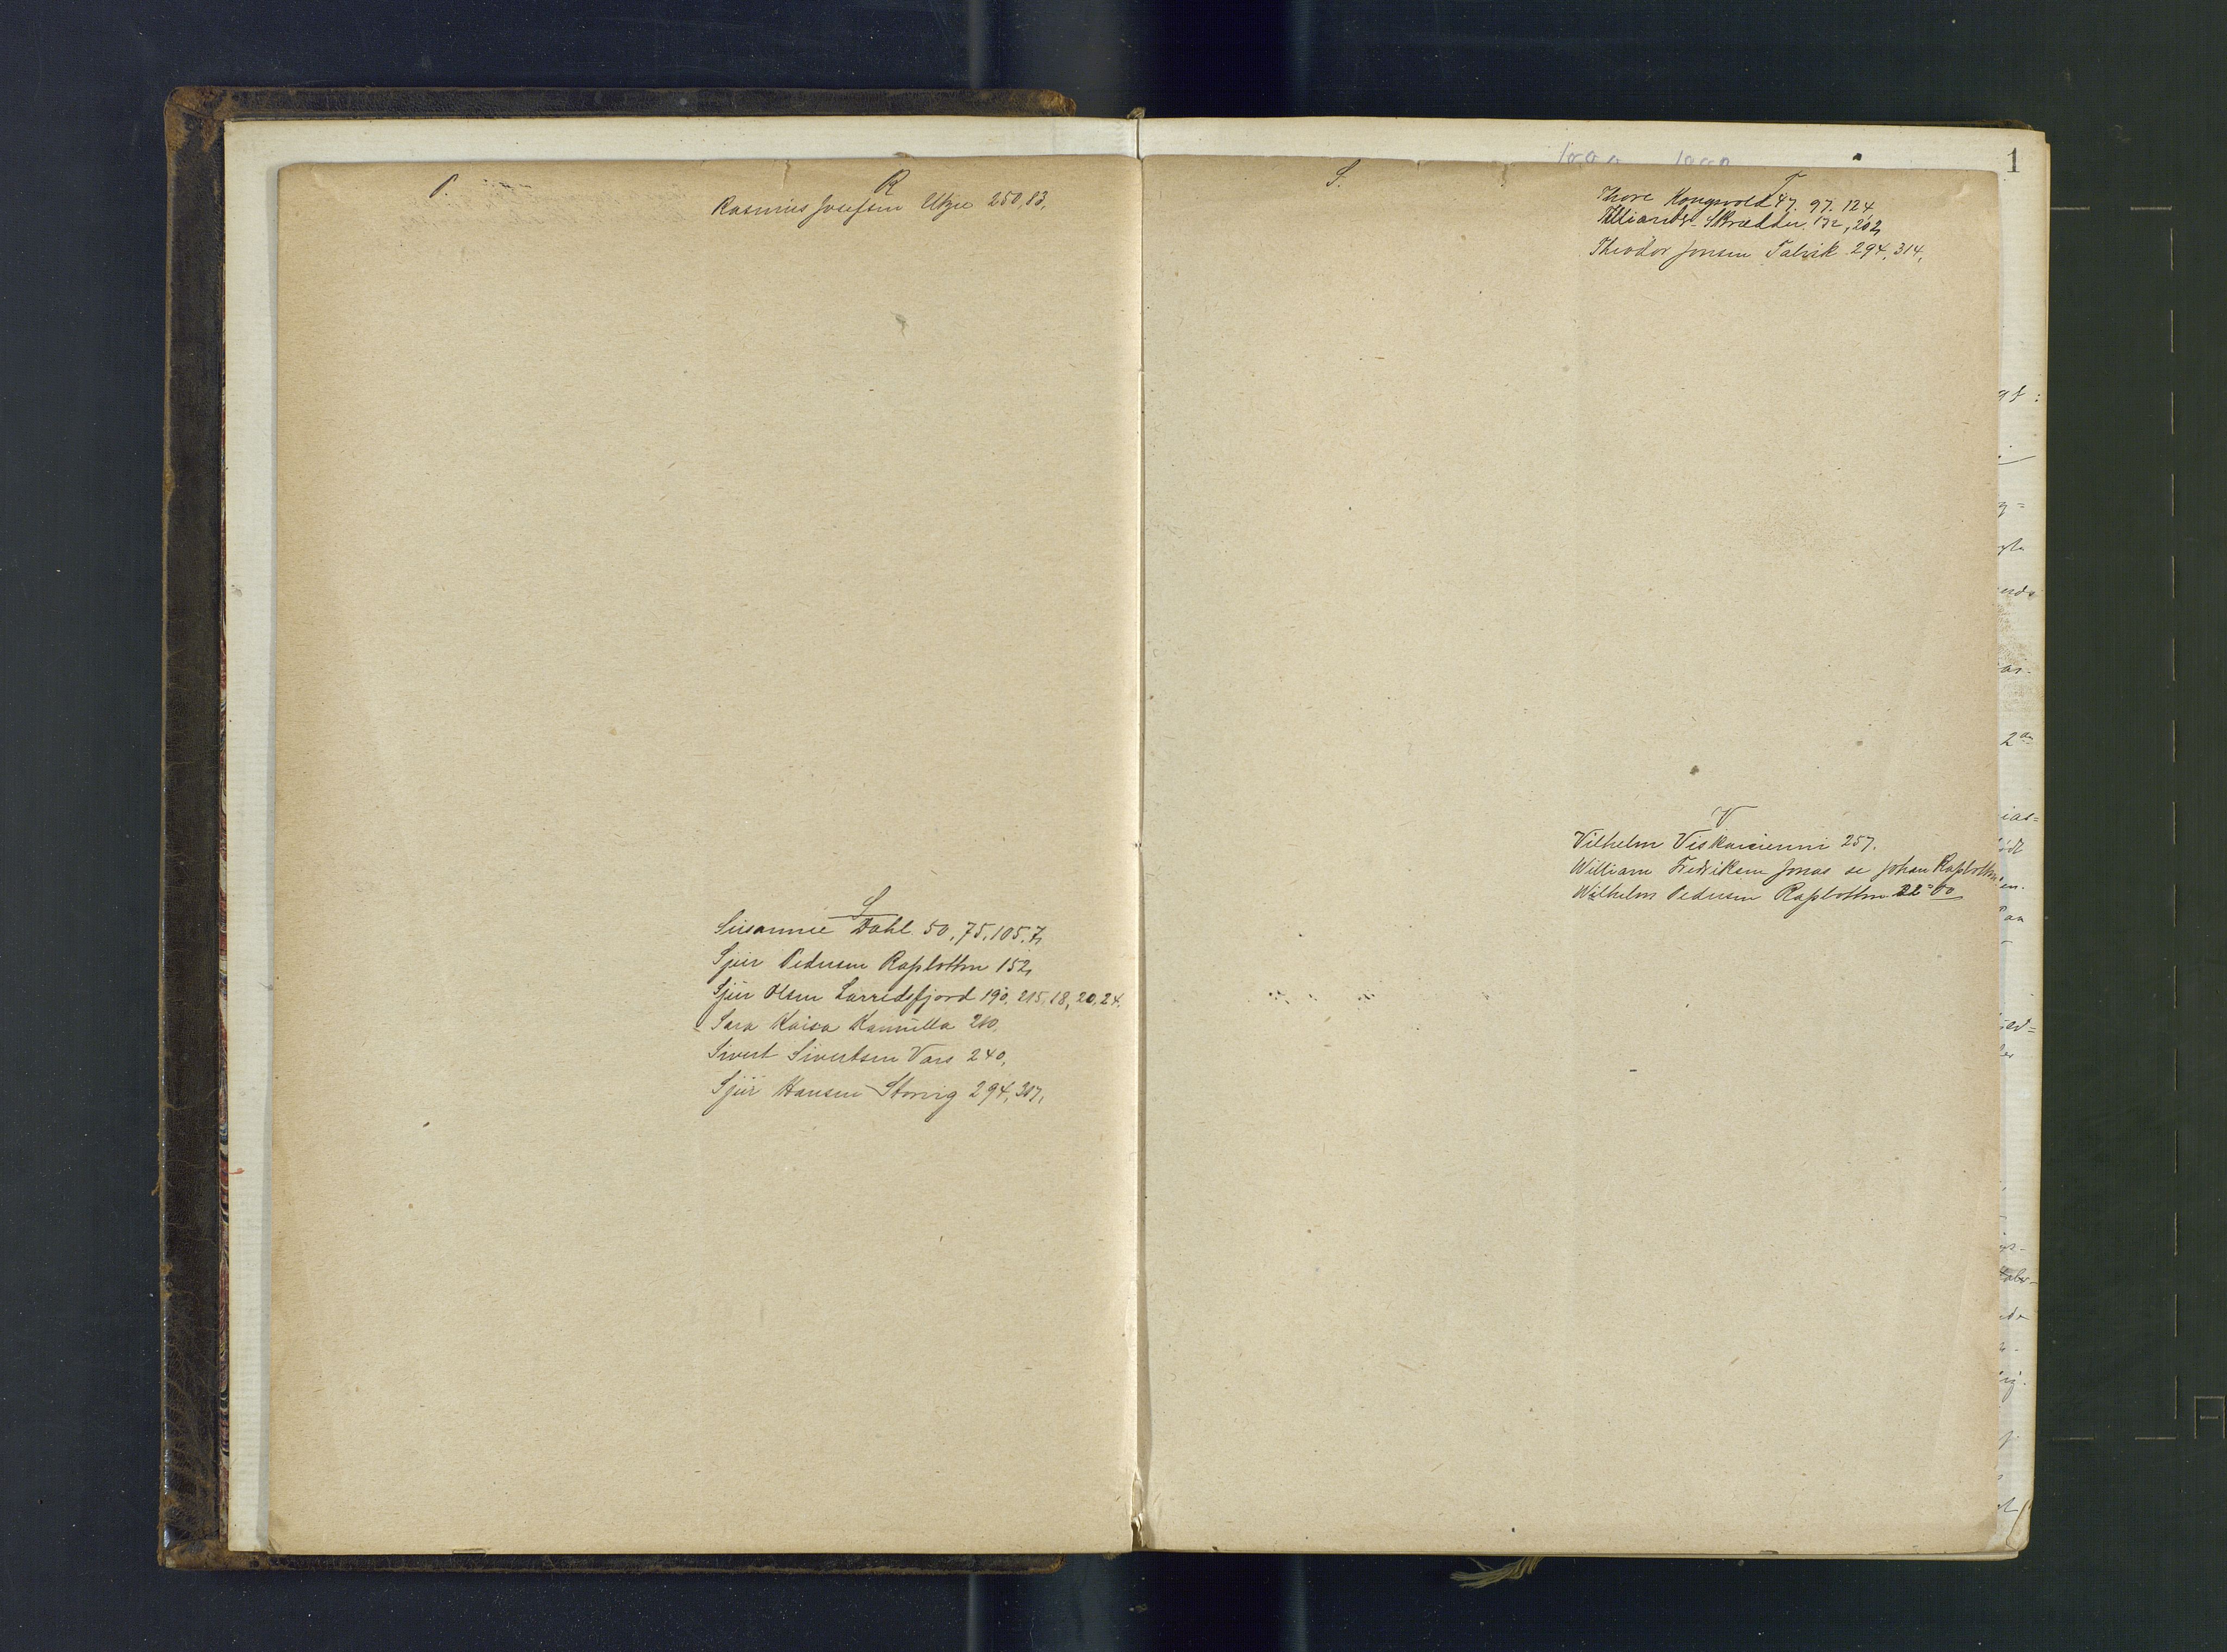 P.
R
Rasmus Josefsen Utzie 250,83,
S
Susanne Dahl 50, 75, 105, 7,
Sjur Pedersen Rapbotten 152,
Sjur Olsen Larredsfjord 190, 215, 18, 20, 24.
Sara Kaisa 260,
Sivert Sivertsen Vars 240,
Sjur Hansen Storvig 294, 307,
S.
T
Thore Kongsvold 47. 97. 124
Skrædder 132, 202,
Theodor Jonsen Talvik 294, 314,
V
Vilhelm 257.
William Fredriksen Jonas se Johan Rapbotten
Wilhelm Pedersen Rapbotten
1